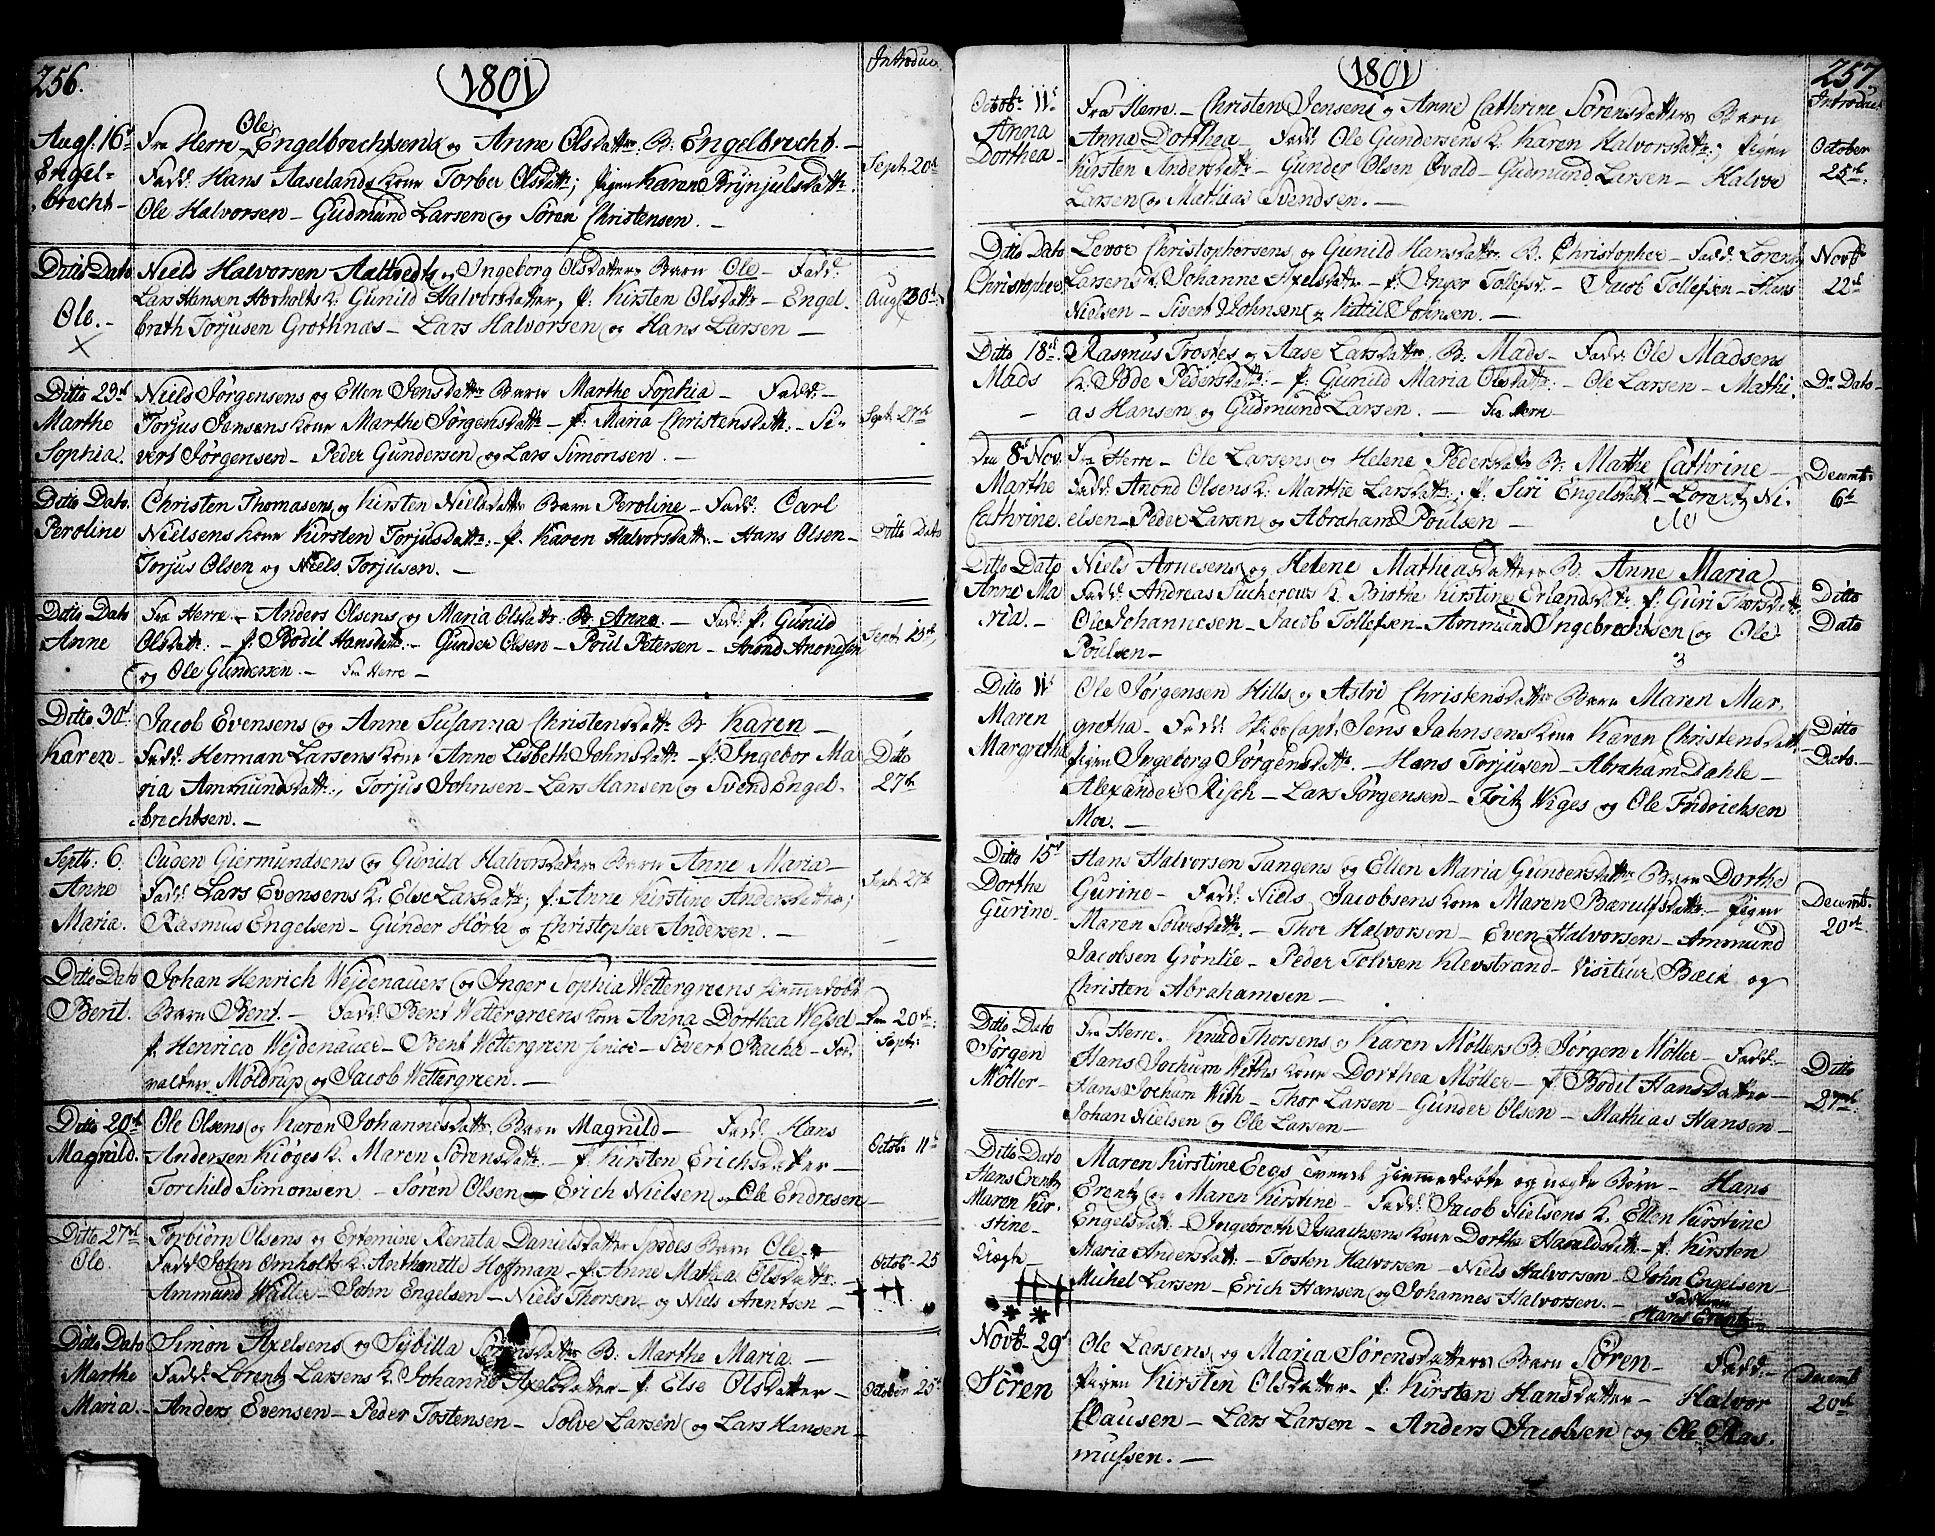 256.
1801
Introduc.
Augs: 16d
Engel-
brecht-
Fra Herre - Ole Engelbrechtsens og Anne Olsdatter B: Engelbrecht -
Fadd: Hans Aaselands kone Torber Olsdatt:; Pigen Karen Brynjulsdatt:
Ole Halvorsen - Gudmund Larsen og Søren Christensen. -
Sept: 20d
Dito Dato
Ole. -
Niels Halvorsen Aaltvedt og Ingeborg Olsdatters Barn Ole - Fadd:
Lars Hansen Hovholts K: Gunild Halvorsdatter, P: Kirsten Olsdatt: - Engel-
breth Torjusen Grothnæs - Lars Halvorsen og Hans Larsen -
Aug: 30d
Ditto 23d
Marthe
Sophia.
Niels Jørgensens og Ellen Jensdatte Barn Marthe Sophia - Fadd: -
Torjus Jensens kone Marthe Jørgensdatt: - P: Maria Christensdatt: - Si-
vert Jørgensen - Peder Gundersen og Lars Simonsen. -
Sept: 27de
Ditto Dato
Peroline
Christen Thomasens og Kirsten Nielsdatte Barn Peroline - Fadd: Carl
Nielsens kone Kirsten Torjusdatt: - P: Karen Halvorsdatt: - Hans Olsen -
Torjus Olsen og Niels Torjusen. -
Ditto Dato
Ditto Dato
Anne
Fra Herre - Anders Olsens og Maria Olsdatt: B: Anne. - Fadd: P: Gunild
Olsdatt: - P: Bodil Hansdatt: - Gunder Olsen - Poul Petersen - Anond Anondsen
og Ole Gundersen. - Fra Herre -
Sept:
Ditto 30d
Karen -
Jacob Evensens og Anne Susanna Christensdatt: B: Karen -
Fadd: Herman Larsens kone Anne Lisbeth Johnsdatt: - P: Ingebor Ma-
ria Ammundsdatt:, Torjus Johnsen - Lars Hansen og Svend Engel-
brechtsen. -
Ditto
27de
Septb: 6.
Anne
Maria.
Ougen Giermundsens og Gunild Halvorsdatters Barn Anne Maria -
Fadd: Lars Evensens K: Else Larsdatt:; P: Anne Kirstine Andersdatter;
Rasmus Engelsen - Gunder Hørte og Christopher Andersen. -
Sept: 27de
Ditto Dato
Bent.
Johan Henrich Wejdenauers og Inger Sophia Wettergreens hiemmedøbt
Barn Bent. - Fadd: Bent Wettergreens kone Anna Dorthea Wessel
P: Henrica Wejdenauer - Bent Wettergreen senior - Sovert Bache - For-
valter Møldrup og Jacob Wettergreen. -
Den 20de
Sept:
Ditto 20d
Magnild.
Ole Olsens og Karen Johannesdatt: Barn Magnild - Fadd: Hans
Andersen Kiøges K: Maren Sørensdatt: - P: Kirsten Erichsdatter -
Torchild Simonsen - Søren Olsen - Erich Nielsen og Ole Endresen -
Octob: 11te
Ditto 27d
Ole.
Torbiørn Olsens og Ertemine Renata Danielsdatter Spodes Barn Ole -
Fadd: John Omholts K: Anthonette Hoffman - P: Anne Mathea Olsdatt: -
Ammund Walle - John Engelsen - Niels Thorsen - og Niels Arentsen -
Octob: 25
Ditto Dato
Marthe
Maria. -
Simon Axelsens og Sibilla Sørensdatte B: Marthe Maria. -
Fadd: Lorentz Larsens K: Johanne Axelsdatter - P: Else Olsdatter -
Anders Evensen - Peder Tostensen - Solve Larsen og Lars Hansen -
October 25d
1801
257
Introduc:
Octob: 11t
Anna
Dorthea -
Fra Herre - Christen Jensens og Anne Cathrine Sørensdatters Barn
Anna Dorthea - Fadd: Ole Gundersens K: Karen Halvorsdatt:; Pigen
Kirsten Andersdatt: - Gunder Olsen Øvald - Gudmund Larsen - Halvor
Larsen og Mathias Svendsen. -
October
25de
Ditto Dato
Christopher
Levor Christophersens og Gunild Hansdatte B: Christopher - Fadd: Lorentz
Larsens K: Johanne Axelsdatt: - P: Inger Tollefsd: - Jacob Tollefsen - Hans
Nielsen - Sivert Johnsen og Kittil Johnsen. -
Novb:
22d
Ditto 18d
Mads
-
Rasmus Trostes og Aase Larsdatte, B: Mads - Fadd: Ole Madsens
K: Pode Pedersdatt: - P: Gunild Maria Olsdatt: - Ole Larsen - Mathi-
as Hansen og Gudmund Larsen. - Fra Herre -
Do Dato -
Den 8d Nov.
Marthe
Cathrine.
Fra Herre - Ole Larsens og Helene Pedersdatte B: Marthe Cathrine -
Fadd: Anond Olsens K: Marthe Larsdatt:; P: Siri Engelsdatt: - Lorentz Ni-
elsen - Peder Larsen og Abraham Poulsen -
Decemb:
6d
Ditto Dato
Anne Ma
ria. -
Niels Arnesens og Helene Mathiasdatters B: Anne Maria
Fadd: Andreas Suckerows K: Birthe Kirstine Erlandsdatt: P: Guri Thorsdatt:
Ole Johannesen - Jacob Tollefsen - Ammund Ingebrechtsen og Ole
Poulsen -
Ditto
Dato
Ditto 11t
Maren
Margretha
Ole Jørgensen Hills og Astri Christensdatte Barn Maren Mar-
gretha - Fadd: Skibs Capt: Jens Jahnsens kone Karen Christensdatt:
Pigen Ingeborg Jørgensdatt: - Hans Torjusen - Abraham Dahle -
Alexander Risch - Lars Jørgensen - Fritz Viges og Ole Fridrichsen
Moe. -
Ditto
Dato. -
Ditto 15d
Dorthe
Gurine -
Hans Halvorsen Tangens og Ellen Maria Gundersdatte Barn Dorthe
Gurine - Fadd: Niels Jacobsens kone Maren Bærulfsdatt: - Pigen
Maren Solvesdatt: - Thor Halvorsen - Even Halvorsen - Ammund
Jacobsen Grønlie - Peder Tolvsen Klevstrand - Visiteur Bæck og
Christen Abrahamsen -
Decemb:
20de
Ditto Dato
Jørgen
Møller -
Fra Herre. Knud Thorsens og Karen Møllers B: Jørgen Møller - Fadd:
Hans Jochum Withs kone Dorthea Møller - P: Bodil Hansdatter -
Hans Jochum With - Thor Larsen - Gunder Olsen - Mathias Hansen -
Johan Nielsen og Ole Larsen -
Ditto
27de
Ditto Dato
Hans Erentz
Maren Kir-
stine -
Uægte
Maren Kirstine Eegs tvende hiemmedøbte og uægte Børn - Hans
Erentz og Maren Kirstine - Fadd: Jacob Nielsens K: Ellen Kirstine
Engelsdatt: - Ingebreth Isaachsens kone Dorthe Haraldsdatt: - P: Kirsten
Maria Andersdatt: - Tosten Halvorsen - Niels Halvorsen - John Engelsen -
Michel Larsen - Erich Hansen og Johannes Halvorsen. -
Faderen
Hans Erentz
Novb: 29d
Søren
Ole Larsens og Maria Sørensdatters Barn Søren - Fadd: -
Pigen Kirsten Olsdatter - P: Kirsten Hansdatter - Halvor
Clausen - Lars Larsen - Anders Jacobsen og Ole Ras-
mussen. -
Decemb:
20de